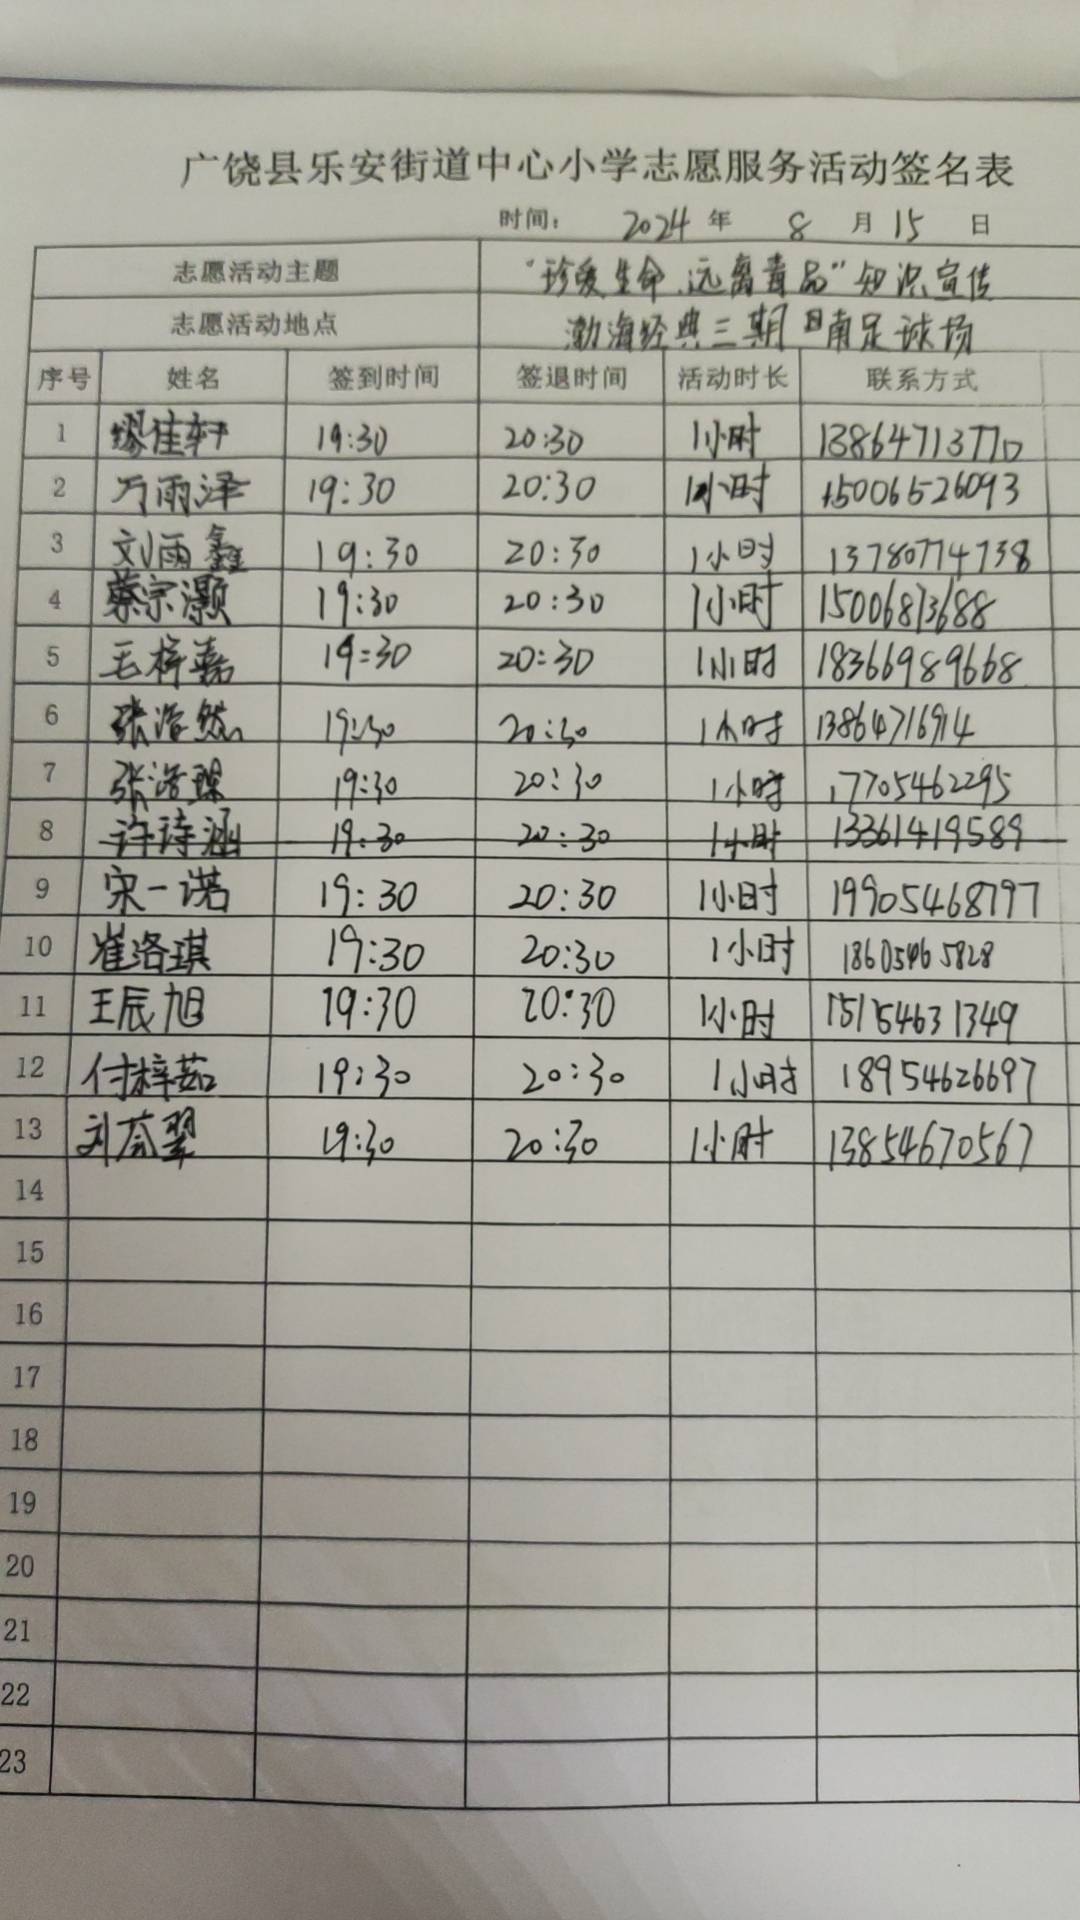 广饶县乐安街道中心小学志愿服务活动签名表
时间： 2024 年 8 月 15 日
志愿活动主题 “珍爱生命、远离毒品”知识宣传
志愿活动地点 渤海经典三期 南足球场
序号 姓名 签到时间 签退时间 活动时长 联系方式
1 缪佳轩 19:30 20:30 1小时 13864713770
2 万雨泽 19:30 20:30 1小时 15006526093
3 刘雨鑫 19:30 20:30 1小时 13780774738
4 蔡宗灏 19:30 20:30 1小时 15006813688
5 王梓嘉 19:30 20:30 1小时 18366989668
6 张浩然 19:30 20:30 1小时 13864716914
7 张浩琛 19:30 20:30 1小时 17705462295
8 许诗涵 19:30 20:30 1小时 13361419589
9 宋一诺 19:30 20:30 1小时 19905468797
10 崔洛琪 19:30 20:30 1小时 18605465828
11 王辰旭 19:30 20:30 1小时 15154631349
12 付梓茹 19:30 20:30 1小时 18954626697
13 刘荟翠 19:30 20:30 1小时 13854670567
14
15
16
17
18
19
20
21
22
23